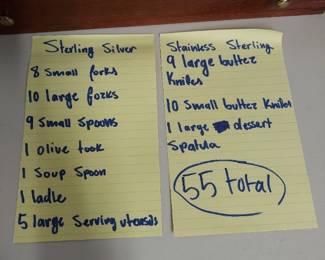 Sterling Silver
8 small forks
10 large forks
9 small spoons
1 olive took
1 Soup Spoon
1 ladle
5 large Serving utensils
Stainless Sterling
9 large butter
Knifes
10 Small butter Knifes
1 large dessert
Spatula
55 total